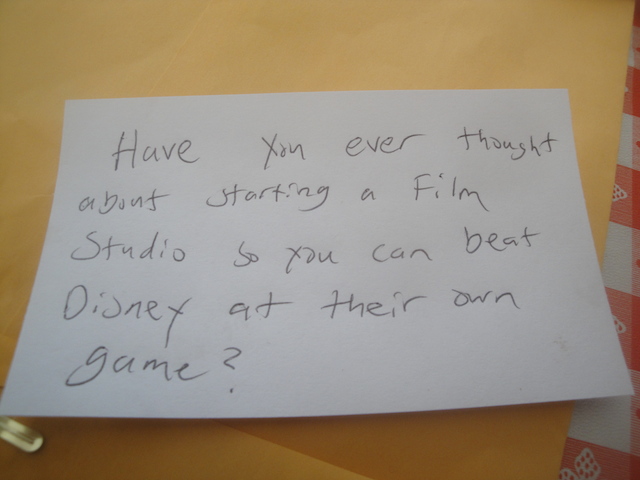 Have you ever thought
about starting a Film
Studio so you can beat
Disney at their own
game?